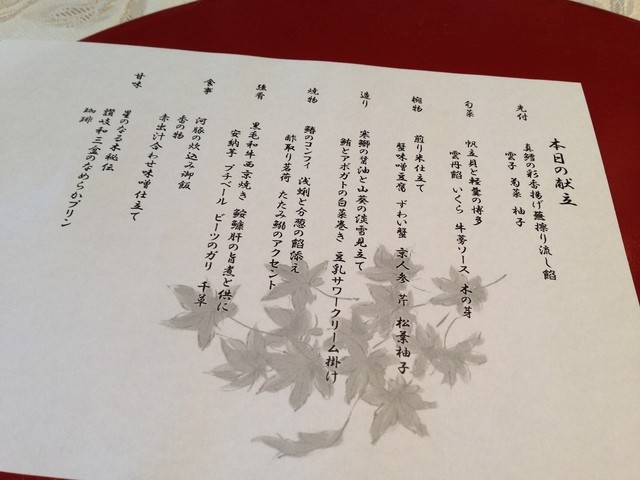 本日の献立
先付
真鱈の彩香揚げ蕪擦り流し餡
雲子 菊菜 柚子
旬菜
帆立貝と軽羹の博多
雲丹餡 いくら 牛蒡ソース 木の芽
椀物
煎り米仕立て
蟹味噌豆腐 ずわい蟹 京人参 芹 松葉柚子
造り
寒鰤の醤油と山葵の淡雪見立て
鮪とアボガトの白菜巻き 豆乳サワークリーム掛け
焼物
鰆のコンフィ 浅蜊と分葱の餡添え
酢取り茗荷 たたみ鰯のアクセント
強肴
黒毛和牛西京焼き 鮟鱇肝の旨煮と供に
安納芋 プチベール ビーツのガリ 千草
食事
河豚の炊込み御飯
香の物
赤出汁合わせ味噌仕立て
甘味
星のなる木秘伝
讃岐和三盆のなめらかプリン
珈琲